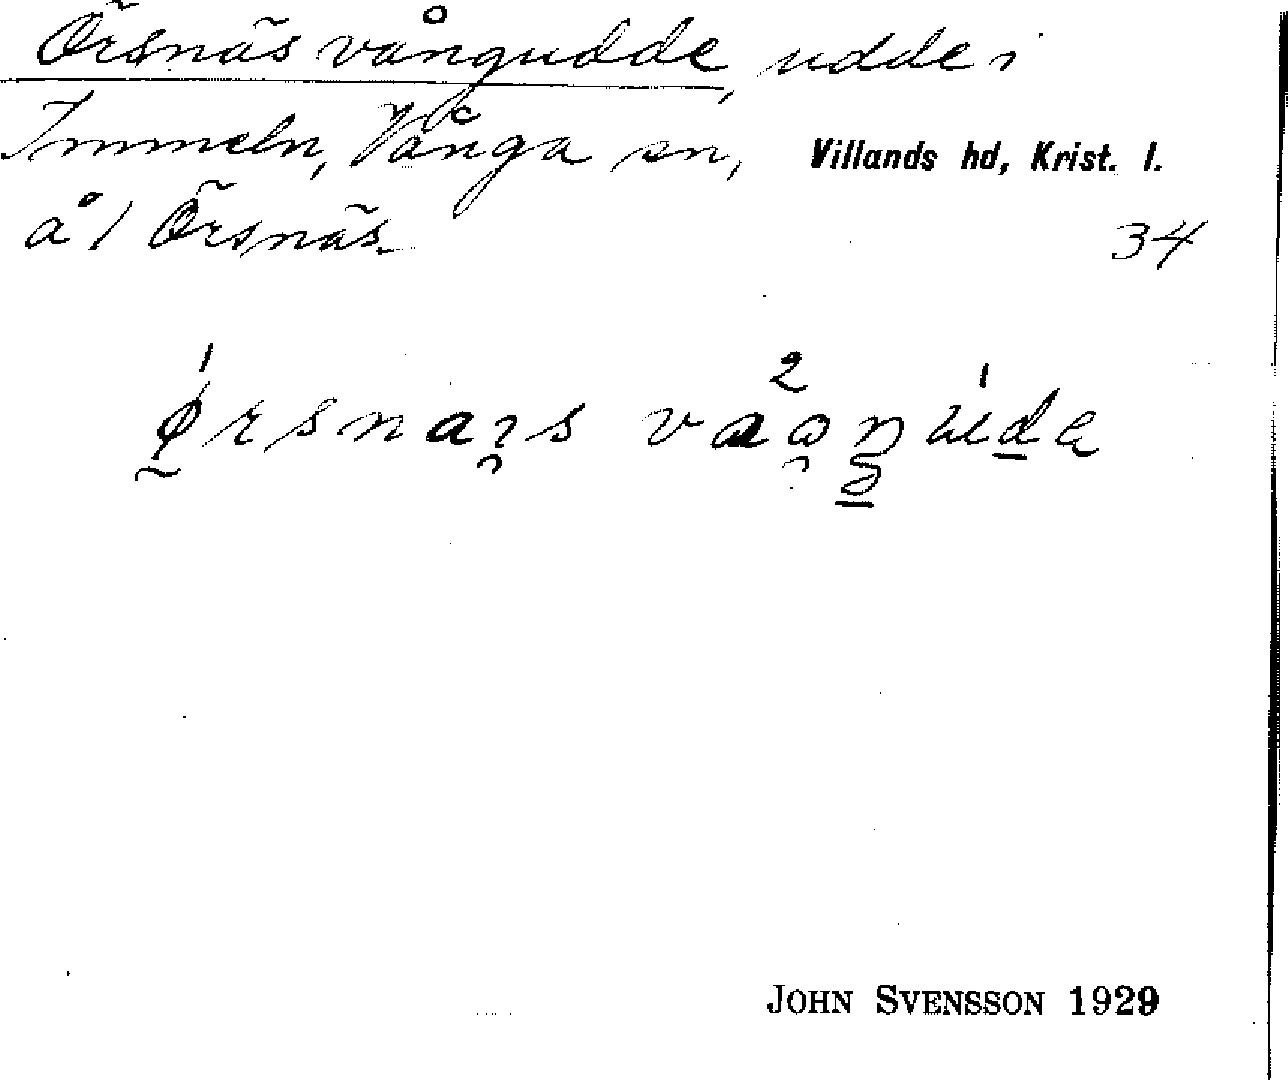 Örsnäs vångudde, udde i
Immeln, Vånga sn, Villands hd, Krist. l.
å / Örsnäs. 34
JOHN SVENSSON 1929